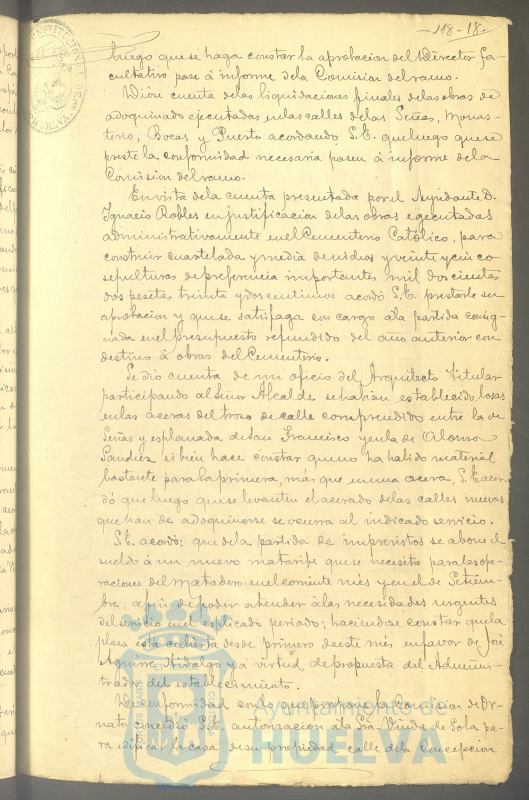 -118- 18.
luego que se haga constar la aprobacion del Director fa-
cultativo pase á informe de la Comision del ramo.
Dióse cuenta de las liquidaciones finales de las obras de
adoquinado ejecutadas en las calles de las Señas, Monas-
terio, Bocas y Puerto acordando S.E. que luego que se
preste la conformidad necesaria pasen á informe de la
Comision del ramo.
En vista de la cuenta presentada por el Ayudante D.
Ignacio Robles en justificacion de las obras egecutadas
administrativamente en el Cementerio Católico, para
construir cuartelada y media de nidos y veinte y cinco
sepulturas de preferencia importantes mil doscientas
dos pesetas treinta y dos centimos acordó S.E. prestarle su
aprobacion y que se satisfaga con cargo á la partida consig-
nada en el presupuesto refundido del año anterior con
destino á obras del Cementerio.
Se dió cuenta de un oficio del Arquitecto Titular
participando al Señor Alcalde se habian establecido losas
en las aceras del trozo de calle comprendido entre la de
Señas y esplanada de San Francisco y en la de Alonso
Sanchez si bien hace constar que no ha habido material
bastante para la primera, más que en una acera, S.E. acor-
dó que luego que se levanten el acerado de las calles nuevas
que han de adoquinarse se ocurra al indicado servicio.
S.E. acordó: que de la partida de imprevistos se abone el
sueldo á un nuevo matarife que se necesita para las ope-
raciones del matadero, en el corriente més y en el de Setiem-
bre, a fin de poder atender á las necesidades urgentes
del servicio en el esplicado periodo; haciendose constar que la
plaza está cubierta desde primero de este més en favor de José
Aguirre Hidalgo á virtud de propuesta del Adminis-
trador del establecimiento.
De conformidad con lo que propone la Comision de Or-
nato concedió S.E. autorizacion á la Sra. Viuda de Sola pa-
ra edificar la casa de su propiedad calle de la Concepcion
Ayuntamiento de
HUELVA